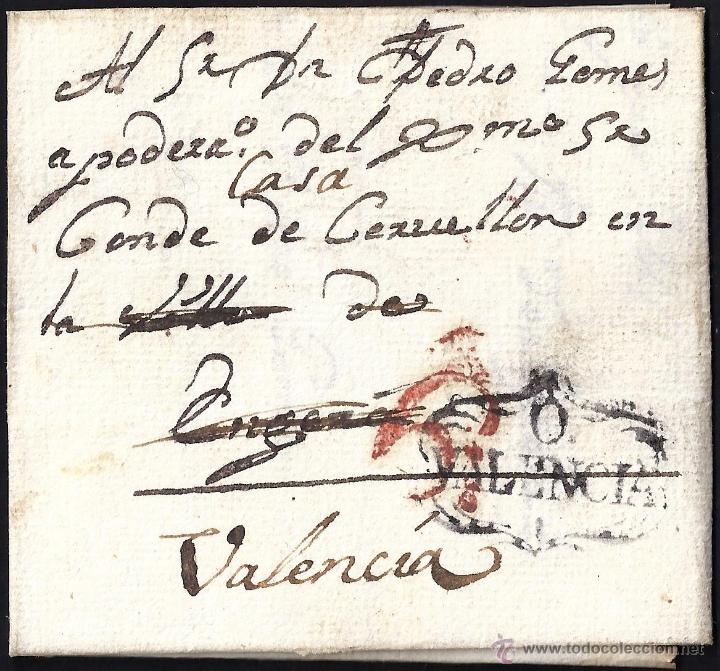 Al Sr Dn Pedro Gomes
apoderro. del Exmo Sr
Casa
Conde de Cervellon en
la Villa de
Valencia
O.
VALENCIA
www.todocoleccion.net